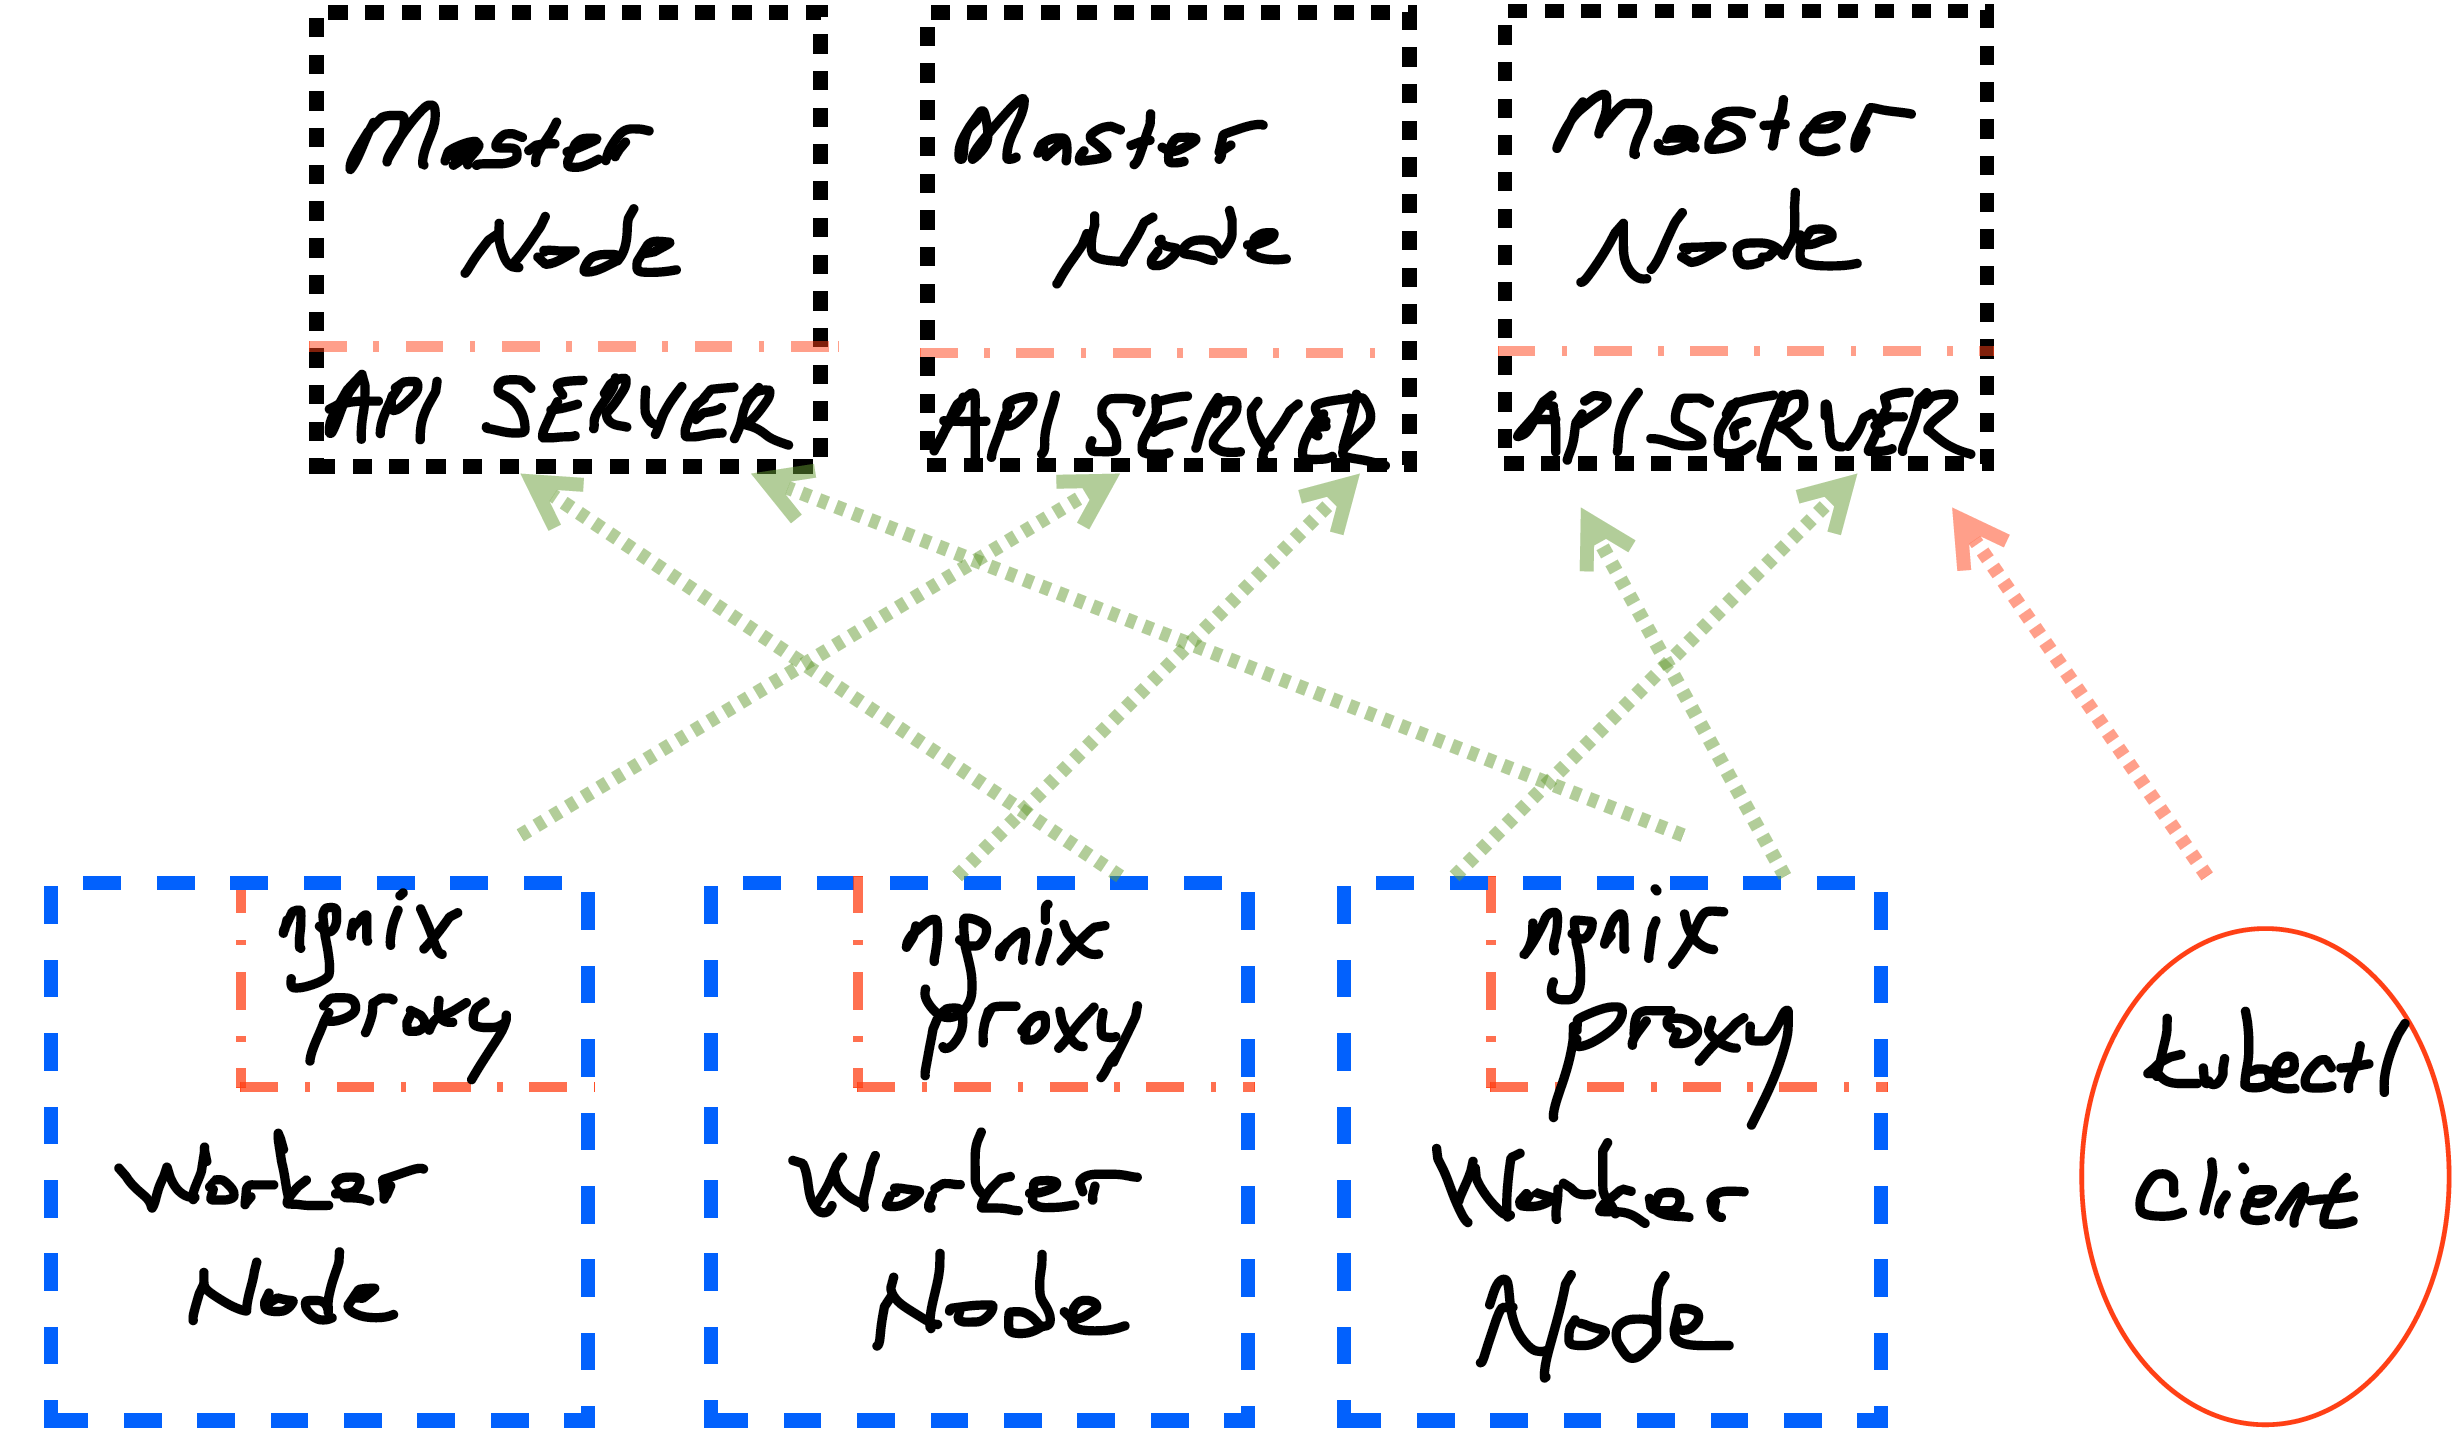 Master
Node
API SERVER
Master
Node
API SERVER
Master
Node
API SERVER
ngnix
proxy
Worker
Node
ngnix
proxy
Worker
Node
ngnix
proxy
Worker
Node
kubectl
client